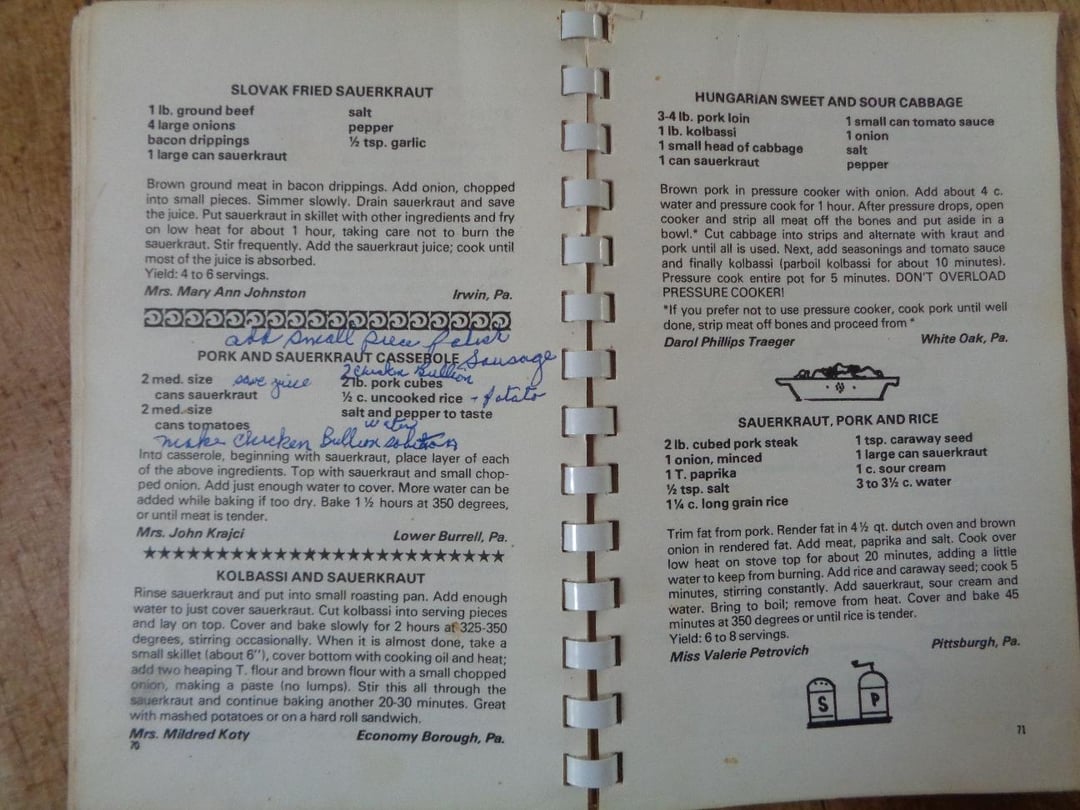 SLOVAK FRIED SAUERKRAUT
1 lb. ground beef salt
4 large onions pepper
bacon drippings ½ tsp. garlic
1 large can sauerkraut
Brown ground meat in bacon drippings. Add onion, chopped
into small pieces. Simmer slowly. Drain sauerkraut and save
the juice. Put sauerkraut in skillet with other ingredients and fry
on low heat for about 1 hour, taking care not to burn the
sauerkraut. Stir frequently. Add the sauerkraut juice; cook until
most of the juice is absorbed.
Yield: 4 to 6 servings.
Mrs. Mary Ann Johnston Irwin, Pa.
add small piece polish
PORK AND SAUERKRAUT CASSEROLE Sausage
2 chicken Bullion
2 med. size save juice 2 lb. pork cubes
cans sauerkraut ½ c. uncooked rice - potato
2 med. size salt and pepper to taste
cans tomatoes water
make Chicken Bullion solution
Into casserole, beginning with sauerkraut, place layer of each
of the above ingredients. Top with sauerkraut and small chop-
ped onion. Add just enough water to cover. More water can be
added while baking if too dry. Bake 1½ hours at 350 degrees,
or until meat is tender.
Mrs. John Krajci Lower Burrell, Pa.
KOLBASSI AND SAUERKRAUT
Rinse sauerkraut and put into small roasting pan. Add enough
water to just cover sauerkraut. Cut kolbassi into serving pieces
and lay on top. Cover and bake slowly for 2 hours at 325-350
degrees, stirring occasionally. When it is almost done, take a
small skillet (about 6"), cover bottom with cooking oil and heat;
add two heaping T. flour and brown flour with a small chopped
onion, making a paste (no lumps). Stir this all through the
sauerkraut and continue baking another 20-30 minutes. Great
with mashed potatoes or on a hard roll sandwich.
Mrs. Mildred Koty Economy Borough, Pa.
70
HUNGARIAN SWEET AND SOUR CABBAGE
3-4 lb. pork loin 1 small can tomato sauce
1 lb. kolbassi 1 onion
1 small head of cabbage salt
1 can sauerkraut pepper
Brown pork in pressure cooker with onion. Add about 4 c.
water and pressure cook for 1 hour. After pressure drops, open
cooker and strip all meat off the bones and put aside in a
bowl.* Cut cabbage into strips and alternate with kraut and
pork until all is used. Next, add seasonings and tomato sauce
and finally kolbassi (parboil kolbassi for about 10 minutes).
Pressure cook entire pot for 5 minutes. DON'T OVERLOAD
PRESSURE COOKER!
*If you prefer not to use pressure cooker, cook pork until well
done, strip meat off bones and proceed from *
Darol Phillips Traeger White Oak, Pa.
SAUERKRAUT, PORK AND RICE
2 lb. cubed pork steak 1 tsp. caraway seed
1 onion, minced 1 large can sauerkraut
1 T. paprika 1 c. sour cream
½ tsp. salt 3 to 3½ c. water
1¼ c. long grain rice
Trim fat from pork. Render fat in 4½ qt. dutch oven and brown
onion in rendered fat. Add meat, paprika and salt. Cook over
low heat on stove top for about 20 minutes, adding a little
water to keep from burning. Add rice and caraway seed; cook 5
minutes, stirring constantly. Add sauerkraut, sour cream and
water. Bring to boil; remove from heat. Cover and bake 45
minutes at 350 degrees or until rice is tender.
Yield: 6 to 8 servings.
Miss Valerie Petrovich Pittsburgh, Pa.
S P
71